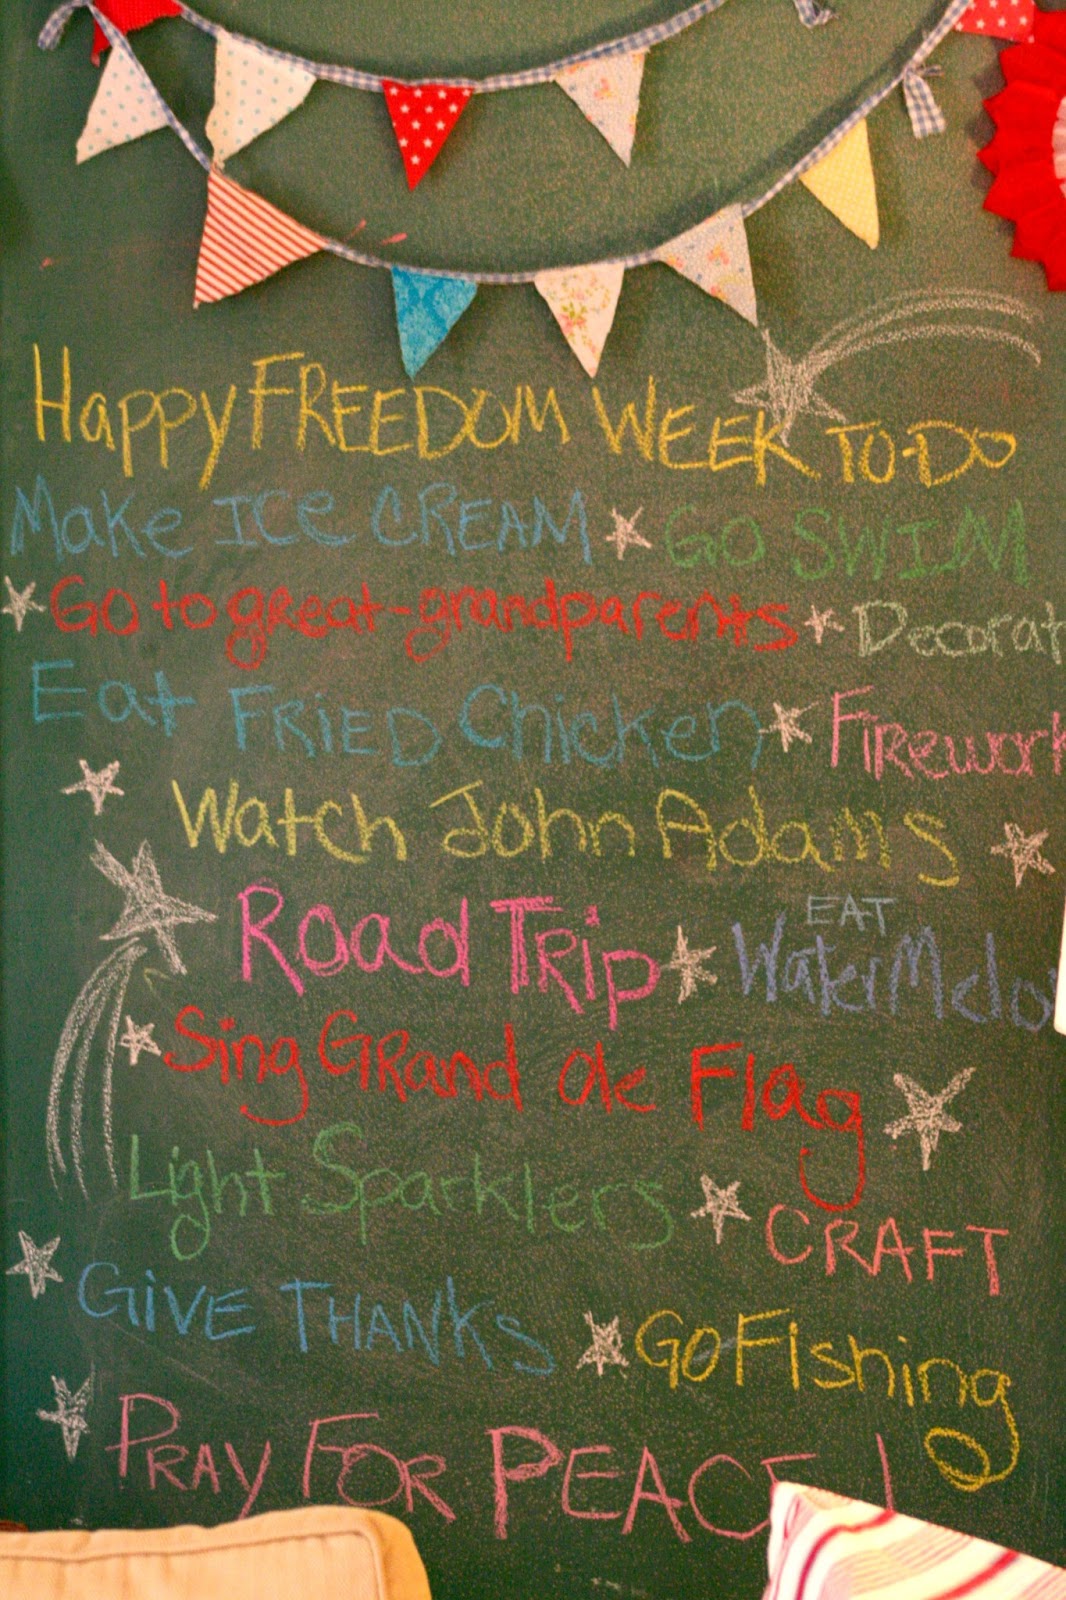 Happy FREEDOM WEEK TO-DO
Make ICe CREAM GO SWIM
Go to great-grandparents Decorat
Eat FRIED Chicken Firework
Watch John Adams
Road Trip EAT WaterMelo
Sing GRand ole Flag
Light Sparklers CRAFT
GiVE THANKS GO Fishing
PRAY FOR PEACE !